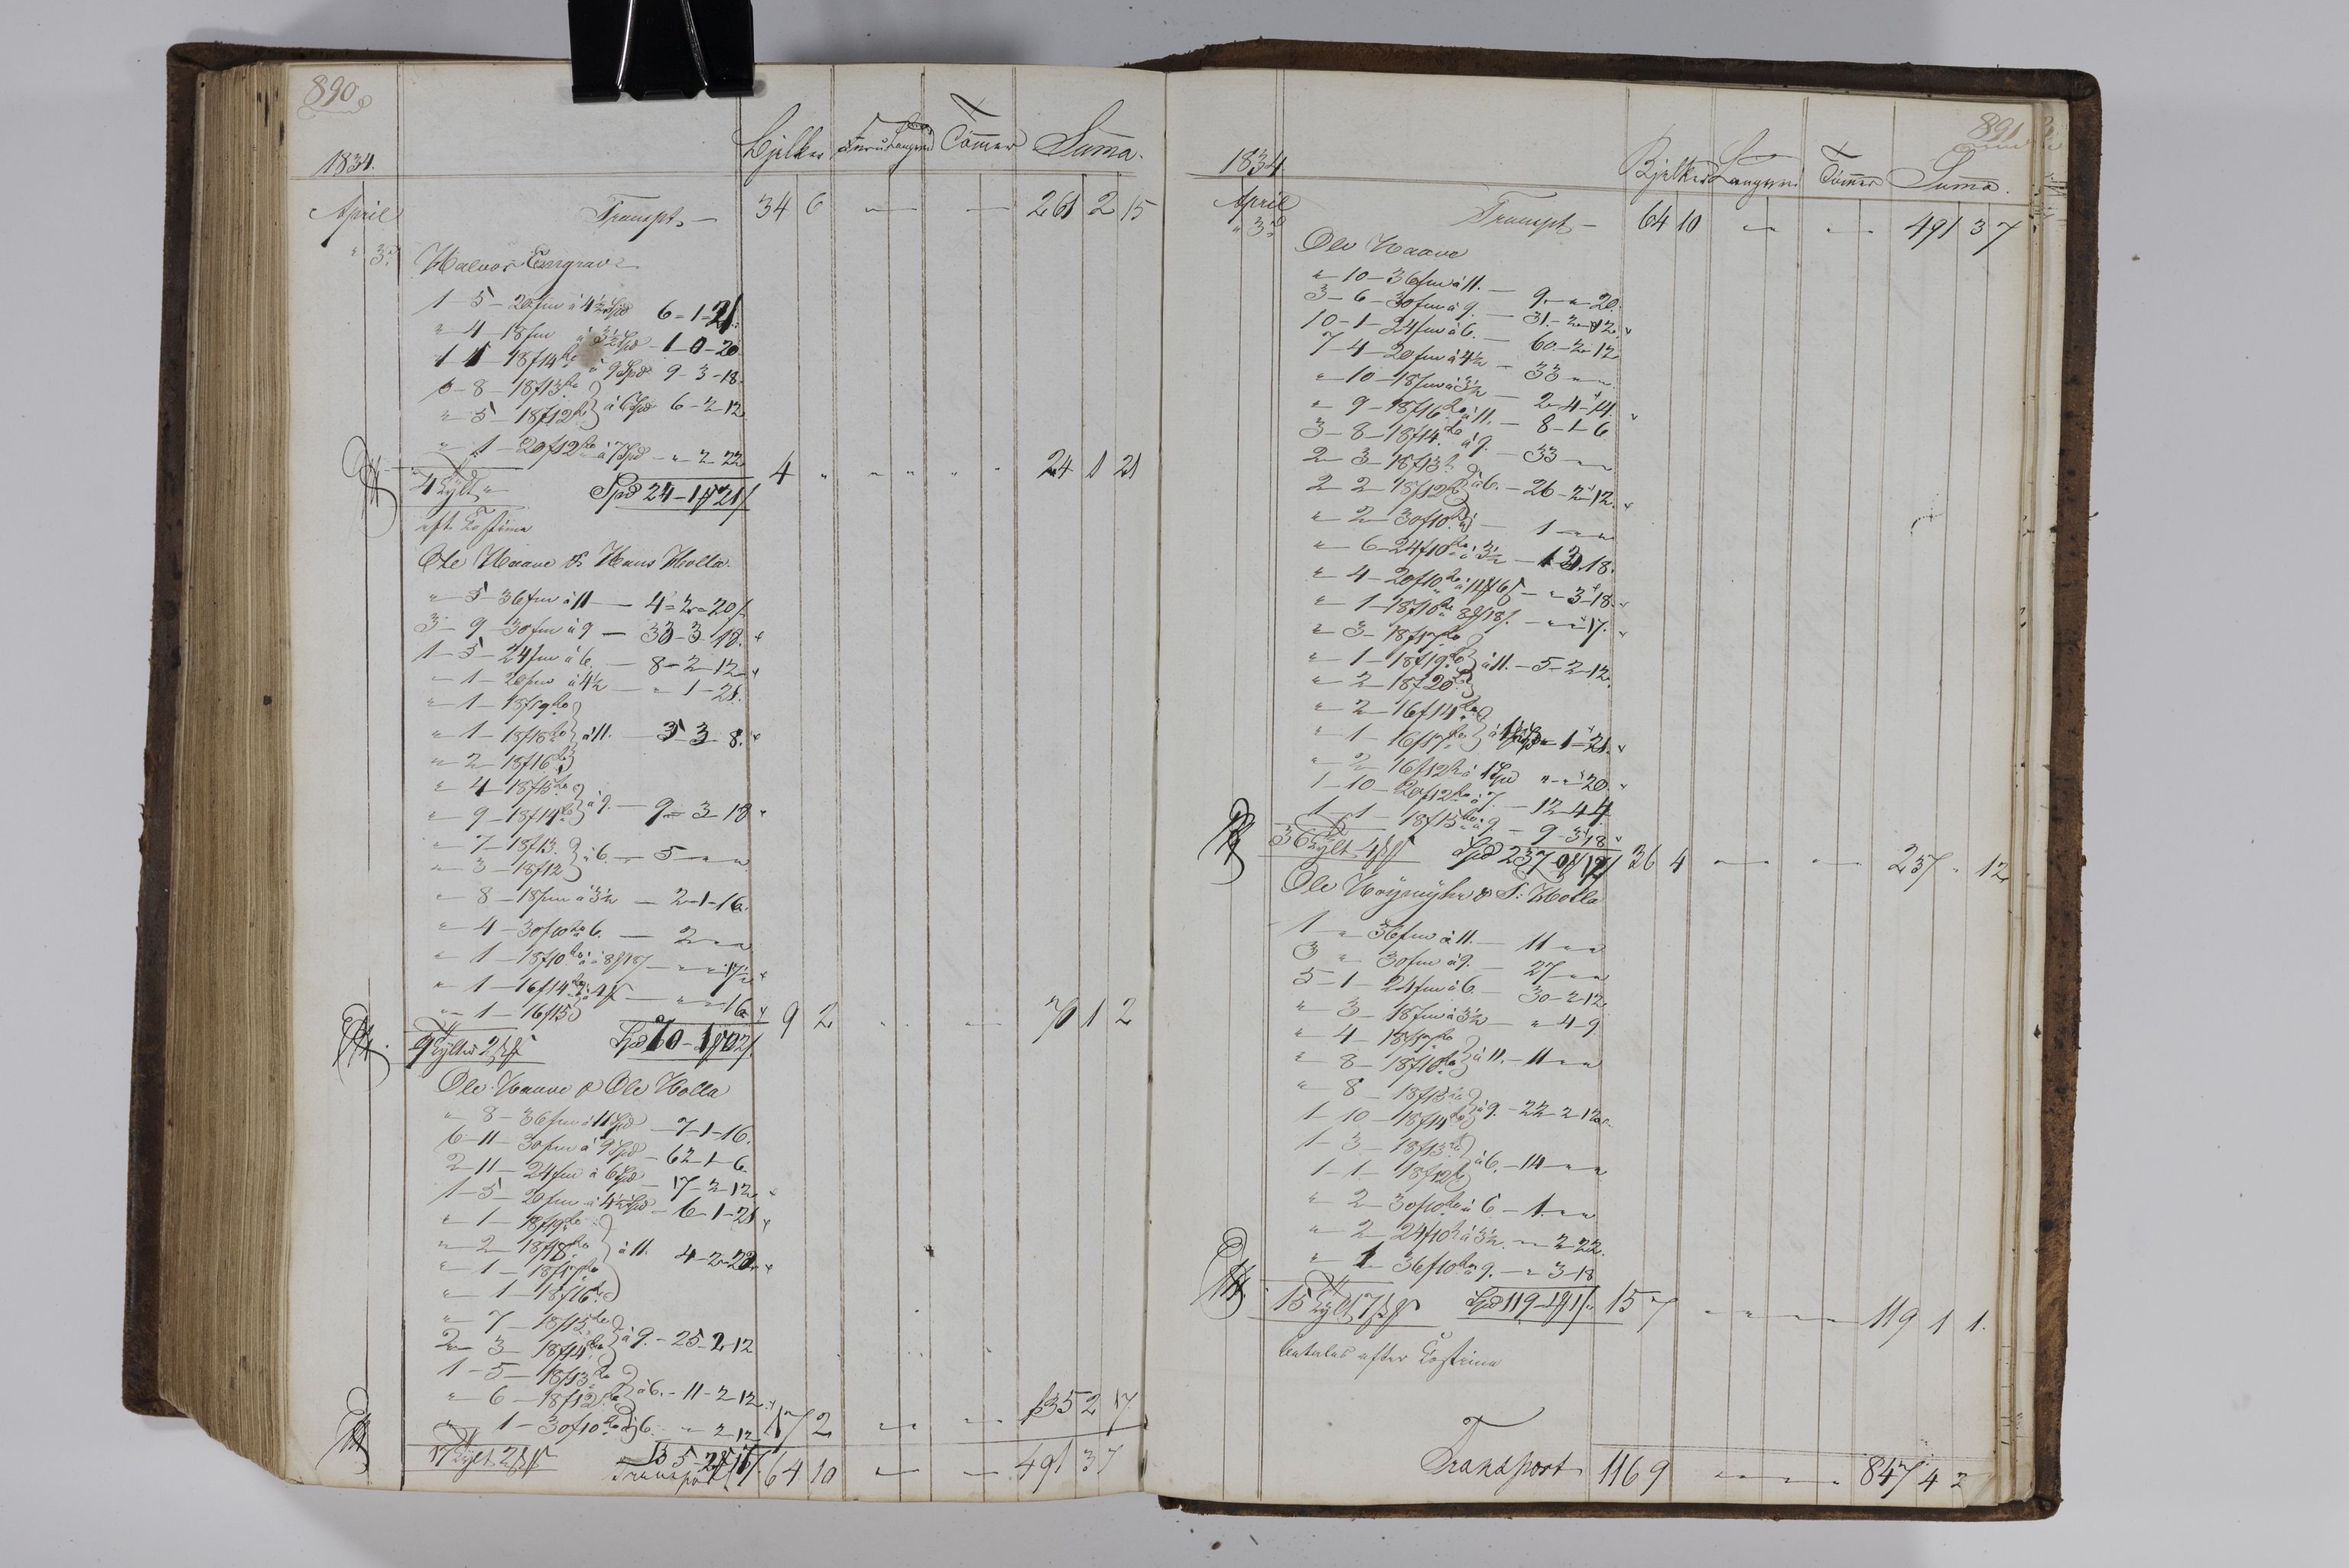 890
1834. Bjelker Furu Langved Tömer Suma.
April Transpt. — 34 6 — — 261 2 15
" 3d Halvor
1 - 5 - 20 fm à 4½ Spd 6 - 1 - 21.
" 4 - 18 fm à 3½ Spd - 1 - 0 - 20
1 1 - 18f 14 à 9 Spd 9 - 3 - 18.
- 8 - 18f 13
" 5 - 18f 12 à 6 Spd 6 - 2 - 12
" 1 - 20f 12 à 7 Spd - " 2 22
4 Tylt " Spd 24 - 1 21 4 " " " " " 24 1 21
Ole Haave & Hans Holla.
" 5 - 36 fm à 11 — 4 - 2 - 20
3 - 9 - 30 fm à 9 — 33 - 3 18.
1 - 5 - 24 fm à 6. — 8 - 2 - 12
" 1 - 20 fm à 4½ — " 1 - 21.
" 1 - 18f 19
" 1 - 18f 18 à 11. — 3 3 8.
" 2 - 18f 16
" 4 - 18f 15
" 9 - 18f 14 à 9. — 9 - 3 - 18
" 7 - 18f 13.
" 3 - 18f 12 à 6. — 5 " "
" 8 - 18 fm à 3½ — 2 - 1 - 16.
" 4 - 30f 10 à 6. — 2 " "
" 1 - 18f 10 à 18 — " " 17
" 1 - 16f 14 à 4 — " " 16
" 1 - 16f 15
9 Tylter 2 Spd 70 - 1 02 9 2 70 1 2
Ole Haave & Ole Holla
" 8 - 36 fm à 11 Spd — 7 - 1 - 16.
6 - 11 - 30 fm à 9 Spd - 62 - 1 - 6.
2 - 11 - 24 fm à 6 Spd — 17 - 2 - 12
1 - 5 - 20 fm à 4½ Spd - 6 - 1 - 21
" 1 - 18f 19
" 2 - 18f 18 à 11. 4 - 2 - 20
" 1 - 18f 17
" 1 - 18f 16
" 7 - 18f 15
2 - 3 - 18f 14 à 9. - 25 - 2 - 12
1 - 5 - 18f 13
" 6 - 18f 12 à 6. - 11 - 2 - 12
" 1 - 30f 10 à 6. " 2 12 17 2 — — 135 2 17
17 Tylt 2 135 - 2 17
Transport 64 10 — — 491 3 7
891
1834 Bjelker Langved Tömer Suma.
April Transpt — 64 10 — — 491 3 7
" 3d
Ole Haave
" 10 - 36 fm à 11. — 9. " 20.
3 - 6 - 30 fm à 9. — 31. - 2 - 12.
10 - 1 - 24 fm à 6. — 60. - 2 - 12
7 - 4 - 20 fm à 4½ — 33 " "
" 10 - 18 fm à 3½ — 2 - 4 - 14.
" 9 - 18f 16 à 11. — 8 - 1 - 6
3 - 8 - 18f 14. à 9. — 33 " "
2 - 3 - 18f 13
2 2 - 18f 12 à 6. — 26 - 2 - 12.
" 2 - 30f 10 — 1 " "
" 6 - 24f 10 à 3½ — 1 3 18.
" 4 - 20f 10 — " 3 - 18.
" 1 - 18f 10 — " " 17.
" 3 - 18f 17
" 1 - 18f 19 à 11. - 5 - 2 - 12.
" 2 - 18f 20
" 2 - 16f 14
" 1 - 16f 17 1 - 21.
" 2 16f 12 à 1 Spd " " 20.
1 - 10 - 20f 12 à 7. — 12 - 4 4
1 1 - 18f 15 à 9 - 9 - 3 18
36 Tylt 4 Spd 237 12 36 4 — — 237 " 12
Ole & : Holla
1 " 36 fm à 11. — 11 " "
3 " 30 fm à 9. — 27 " "
5 - 1 - 24 fm à 6 — 30 - 2 12
" 3 - 18 fm à 3½ — " 4 - 9
" 4 - 18f 17
" 8 - 18f 16 à 11. - 11 " "
" 8 - 18f 15
1 - 10 - 18f 14 à 9. - 22 - 2 - 12
1 - 3 - 18f 13
1 - 1 - 18f 12 à 6. - 14 " "
" 2 - 30f 10 à 6 - 1 " "
" 2 24f 10 à 3½ — 2 22.
" 1 36f 10 à 9. — " 3 - 18
15 Tylt 7 Spd 119 - 1 1 15 7 — — 119 1 1.
Transport 116 9 — — 847 4 2